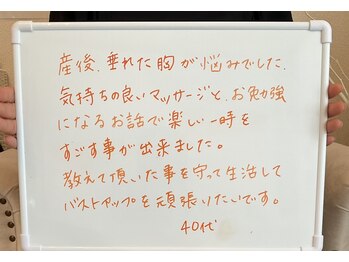 産後、垂れた胸が悩みでした。
気持ちの良いマッサージと、お勉強
になるお話で楽しい一時を
すごす事が出来ました。
教えて頂いた事を守って生活して
バストアップを頑張りたいです。
40代